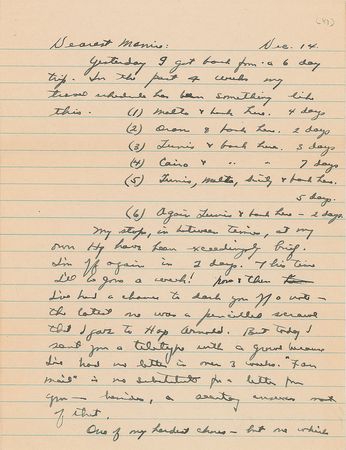 (41)
Dearest Mamie: Dec. 14.
Yesterday I got back from a 6 day
trip. In the past 4 weeks my
travel schedule has been something like
this. (1) Malta & back here. 4 days
(2) Oran & back here. 2 days
(3) Tunis & back here. 3 days
(4) Cairo & " " 7 days
(5) Tunis, Malta, Sicily & back here.
5 days.
(6) Again Tunis & back here - 2 days.
My stops, in between times, at my
own Hq have been exceedingly brief.
I'm off again in 2 days. This time
I'll be gone a week! Now & then
I've had a chance to dash you off a note -
the latest one was a pencilled scrawl
that I gave to Hap Arnold. But today I
sent you a teletype with a growl because
I've had no letter in over 3 weeks. "Fan
mail" is no substitute for a letter from
you - besides, a secretary answers most
of that.
One of my hardest chores - but one which